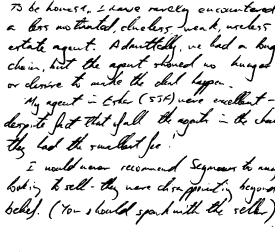 To be honest, I have rarely encountered
a less motivated, clueless, weak, useless
estate agent. Admittedly, we had a long
chain, but the agent showed no hunger
or desire to make the deal happen.
My agent in Esher (              ) were excellent -
despite fact that of all the agents in the chain
they had the smallest fee!
I would never recommend Seymours to any
looking to sell - they were disappointing beyond
belief. (You should speak with the seller)